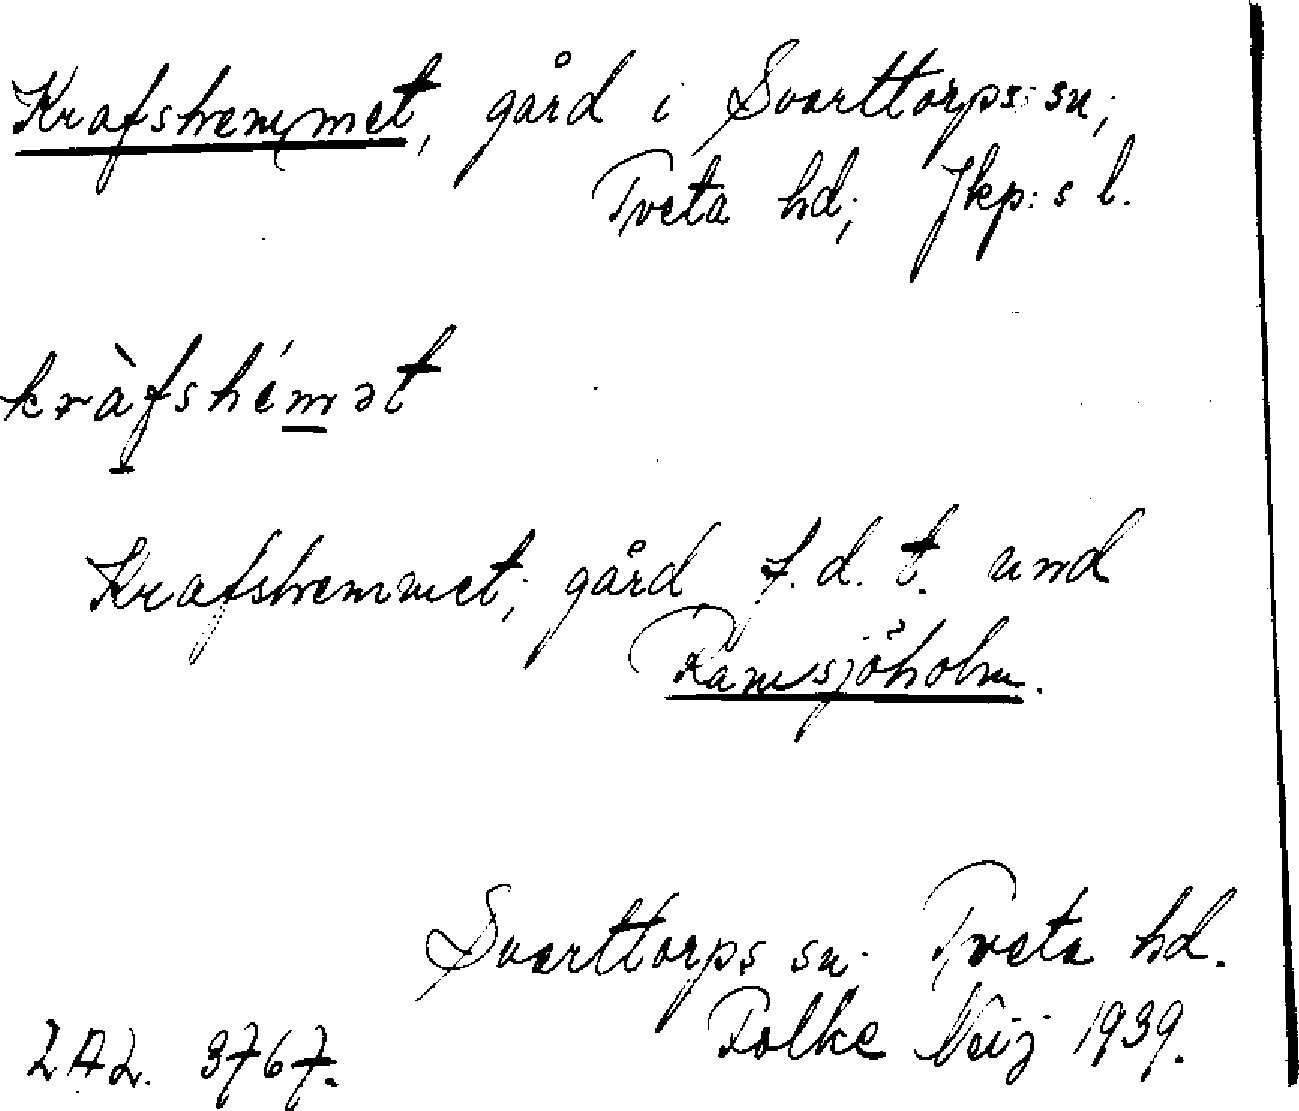 Krafshemmet, gård i Svarttorps: sn;
Tveta hd; Jkp: s l.
kràfshémət
Krafshemmet; gård f.d. t. und
Ramsjöholm.
Svarttorps sn. Tveta hd.
Folke Neij 1939.
LAL. 3767.